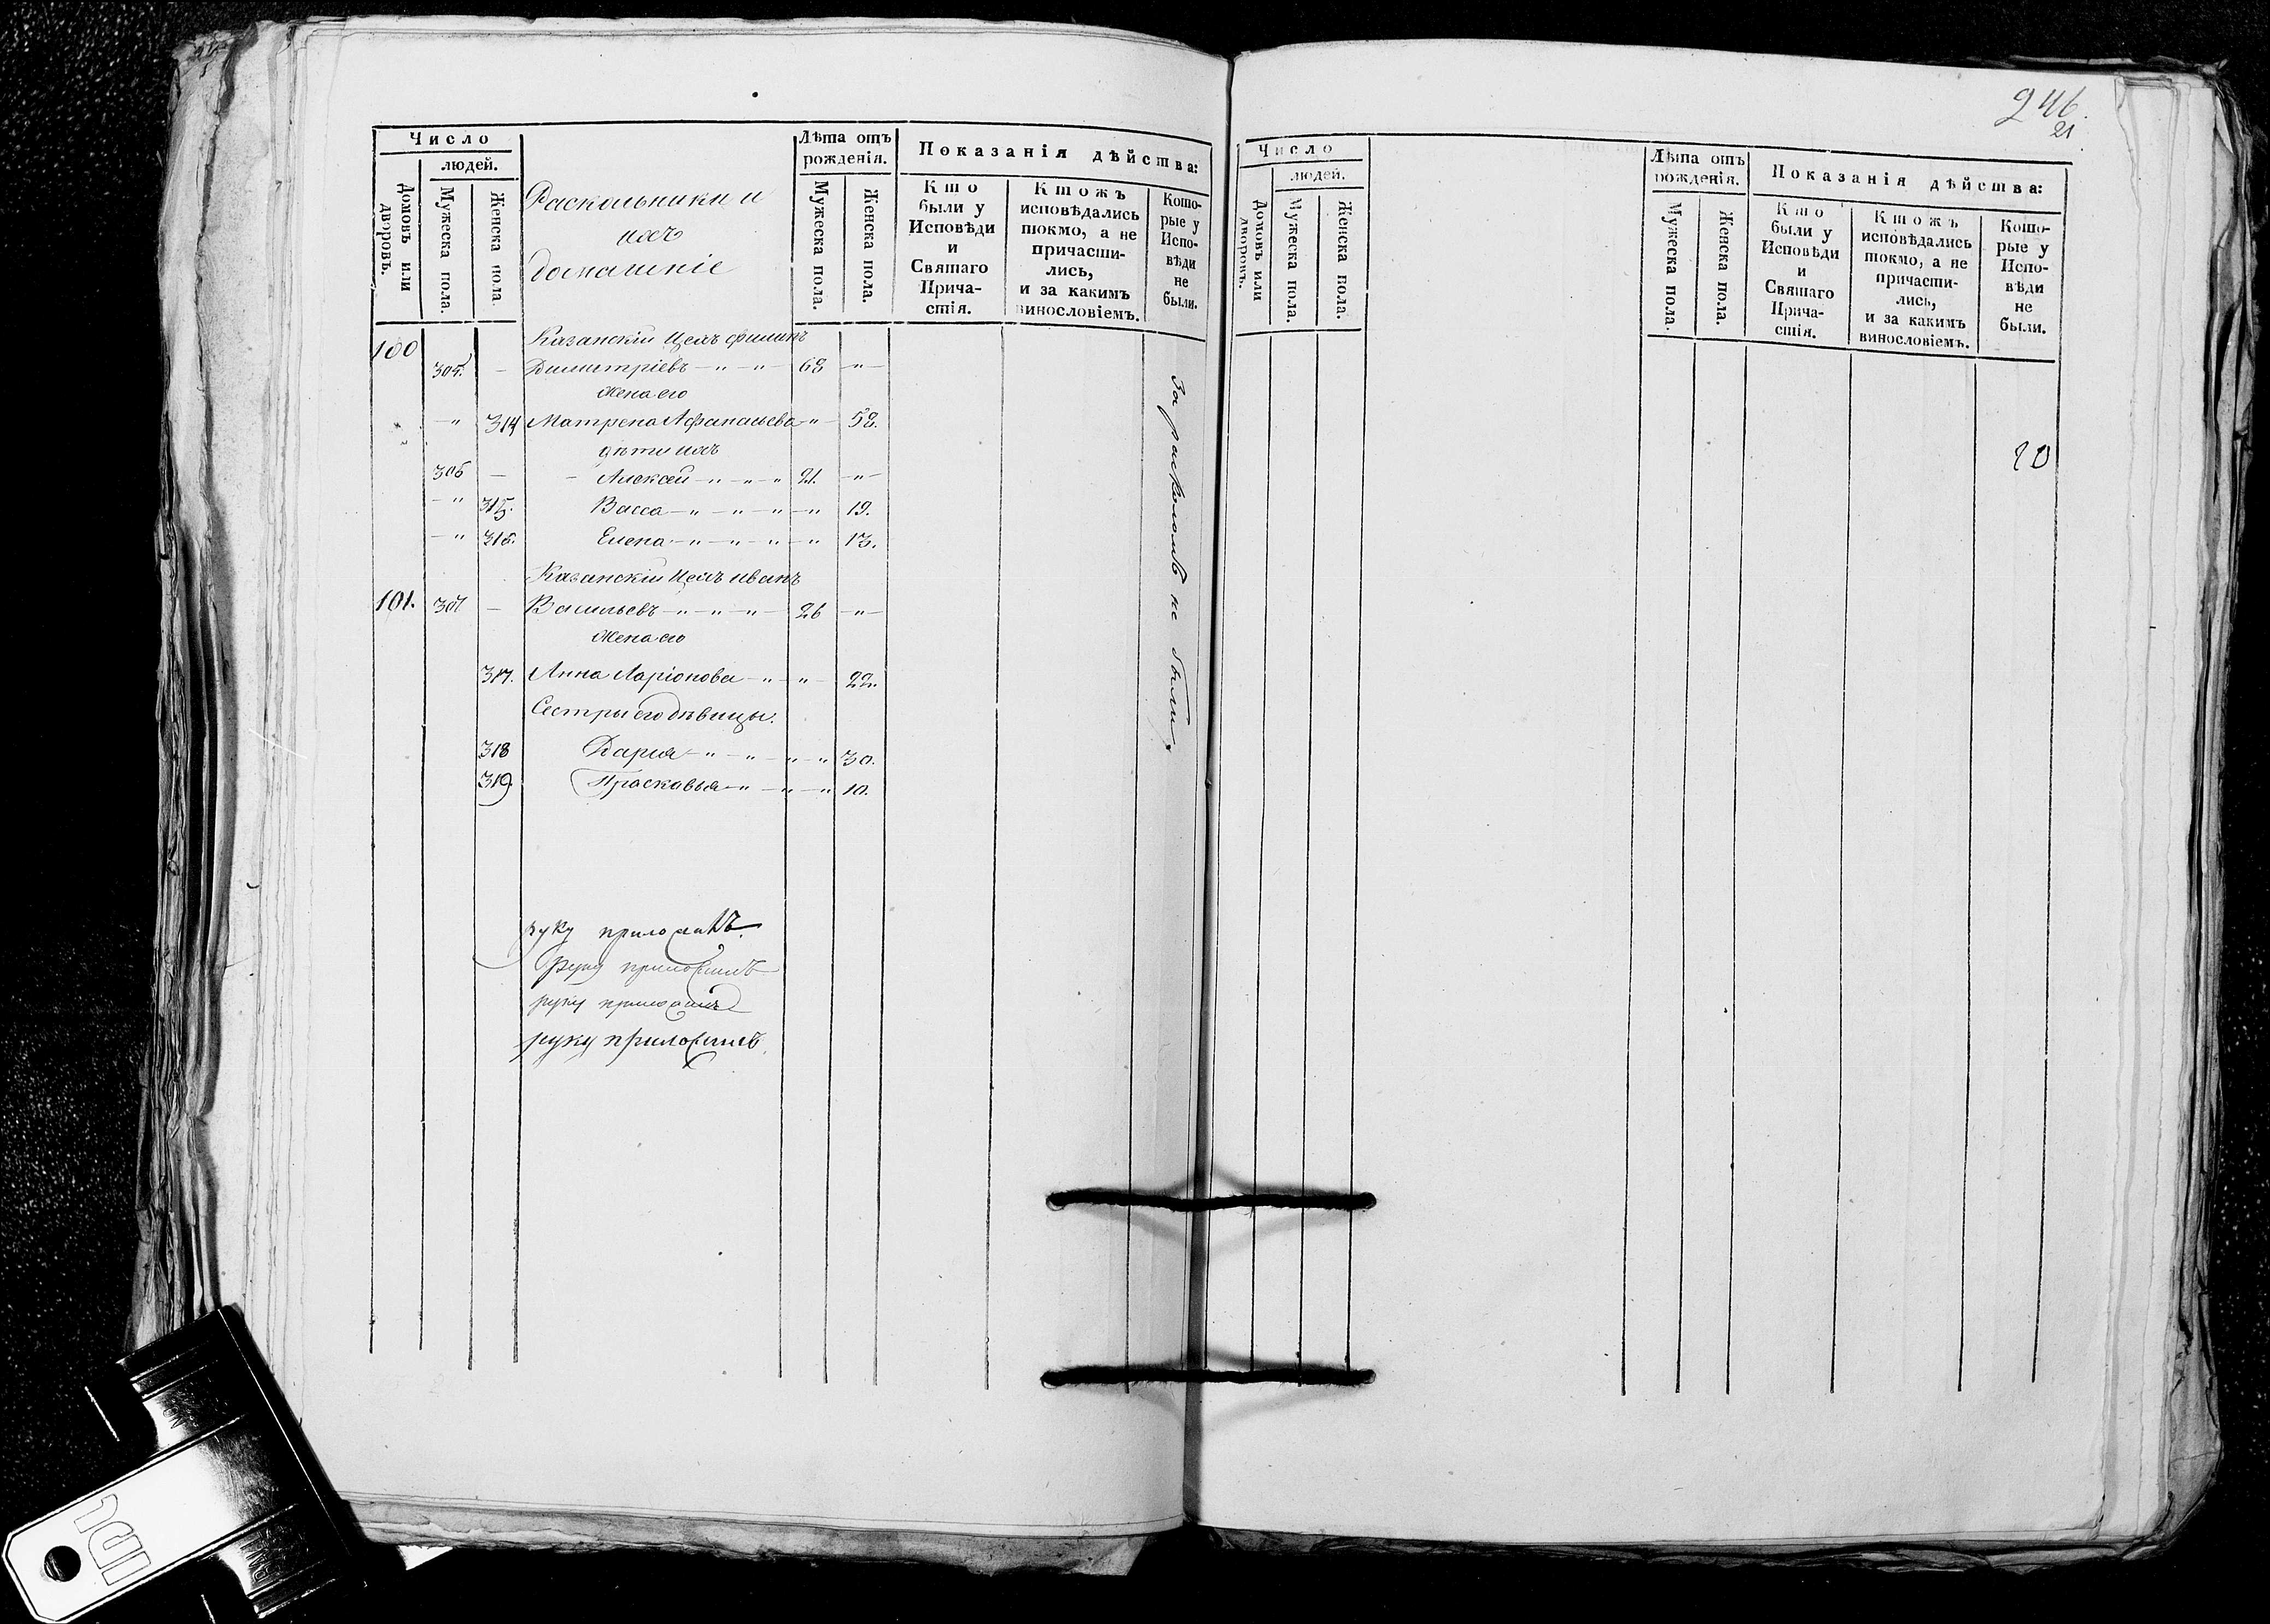 Число
людей.
Домовъ или дворовъ.
Мужеска пола.
Женска пола.
Раскольники и
ихъ
домашніе
Лѣта отъ
рожденія.
Мужеска пола.
Женска пола.
Показанія дѣйства:
Кто
были у
Исповѣди
и
Святаго
Прича-
стія.
Ктожъ
исповѣдались
токмо, а не
причасти-
лись,
и за какимъ
винословіемъ.
Кото-
рые у
Испо-
вѣди
не
были.
100 Казанскій Цехъ филипъ
305. — Димитріевъ — " — " — 63 — " —
Жена его
— " 314 Матрена Афанасьева — " — 52.
дѣти ихъ
306 — — Алексей — " — " — " 21. — " —
— " 315. Васса — " — " — " — " 19.
— " 316. Елена — " — " — " — " 13.
Казанскій Цехъ иванъ
101. 307 — Васильевъ — " — " — " — 26 — " —
Жена его
317. Анна Ларіонова — " — " — 22.
Сестры его дѣвицы.
318 Дарья — " — " — " — " 30.
319. Праскавья — " — " — " 10.
За расколомъ не были.
руку приложилъ
Руку приложилъ
руку приложилъ
руку приложилъ
246.
21
Число
людей.
Домовъ или дворовъ.
Мужеска пола.
Женска пола.
Лѣта отъ
рожденія.
Мужеска пола.
Женска пола.
Показанія дѣйства:
Кто
были у
Исповѣди
и
Святаго
Прича-
стія.
Ктожъ
исповѣдались
токмо, а не
причасти-
лись,
и за какимъ
винословіемъ.
Кото-
рые у
Испо-
вѣди
не
были.